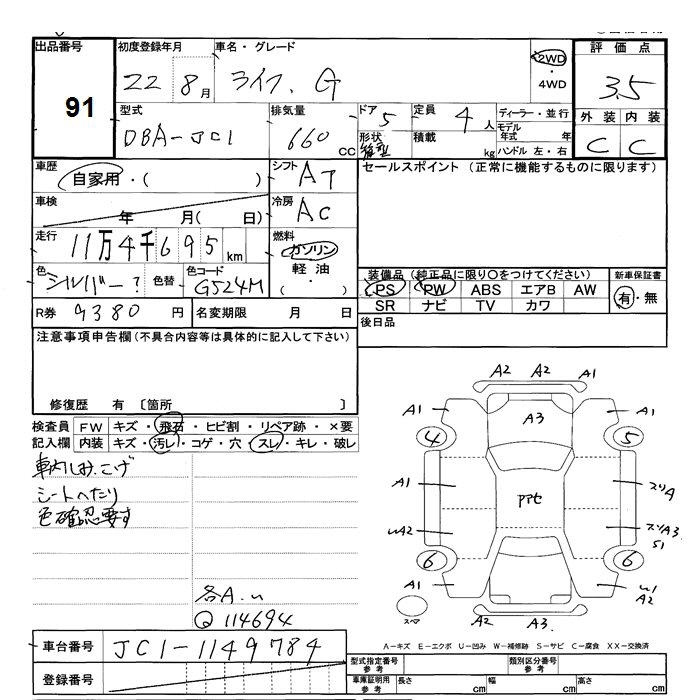 出品番号 初度登録年月 車名・グレード 評価点
91 22 8月 ライフ G 2WD ・ 4WD 3.5
型式 排気量 ドア 5 定員 4人 ディーラー・並行 外装 内装
DBA-JC1 660 cc 形状 積載 kg モデル年式 年 ハンドル 左・右 C C
車歴 自家用・( ) シフト AT セールスポイント (正常に機能するものに限ります)
車検 年 月( 日) 冷房 AC
走行 11万4千695km 燃料 ガソリン 軽油 ( ・ )
色 シルバー? 色替 色コード G524M 装備品(純正品に限り○をつけてください) 新車保証書
PS PW ABS エアB AW 有・無
SR ナビ TV カワ
R券 9380 円 名変期限 月 日 後日品
注意事項申告欄(不具合内容等は具体的に記入して下さい)
修復歴 有 〔箇所 〕
検査員 FW キズ・飛石・ヒビ割・リペア跡・×要
記入欄 内装 キズ・汚レ・コゲ・穴・スレ・キレ・破レ
車内しみ、こげ
シートへたり
色確認要す
各A.u
Q 114694
A2 A2 A1
A1 A3 A1
4 5
A1 スリA
uA2 スリA3
S1
6 6
A1 u1
A2
スマ A2 A3
A-キズ E-エクボ U-凹み W-補修跡 S-サビ C-腐食 XX-交換済
車台番号 JC1-1149784
登録番号
型式指定番号 参考 類別区分番号 参考
車庫証明用 参考 長さ cm 幅 cm 高さ cm